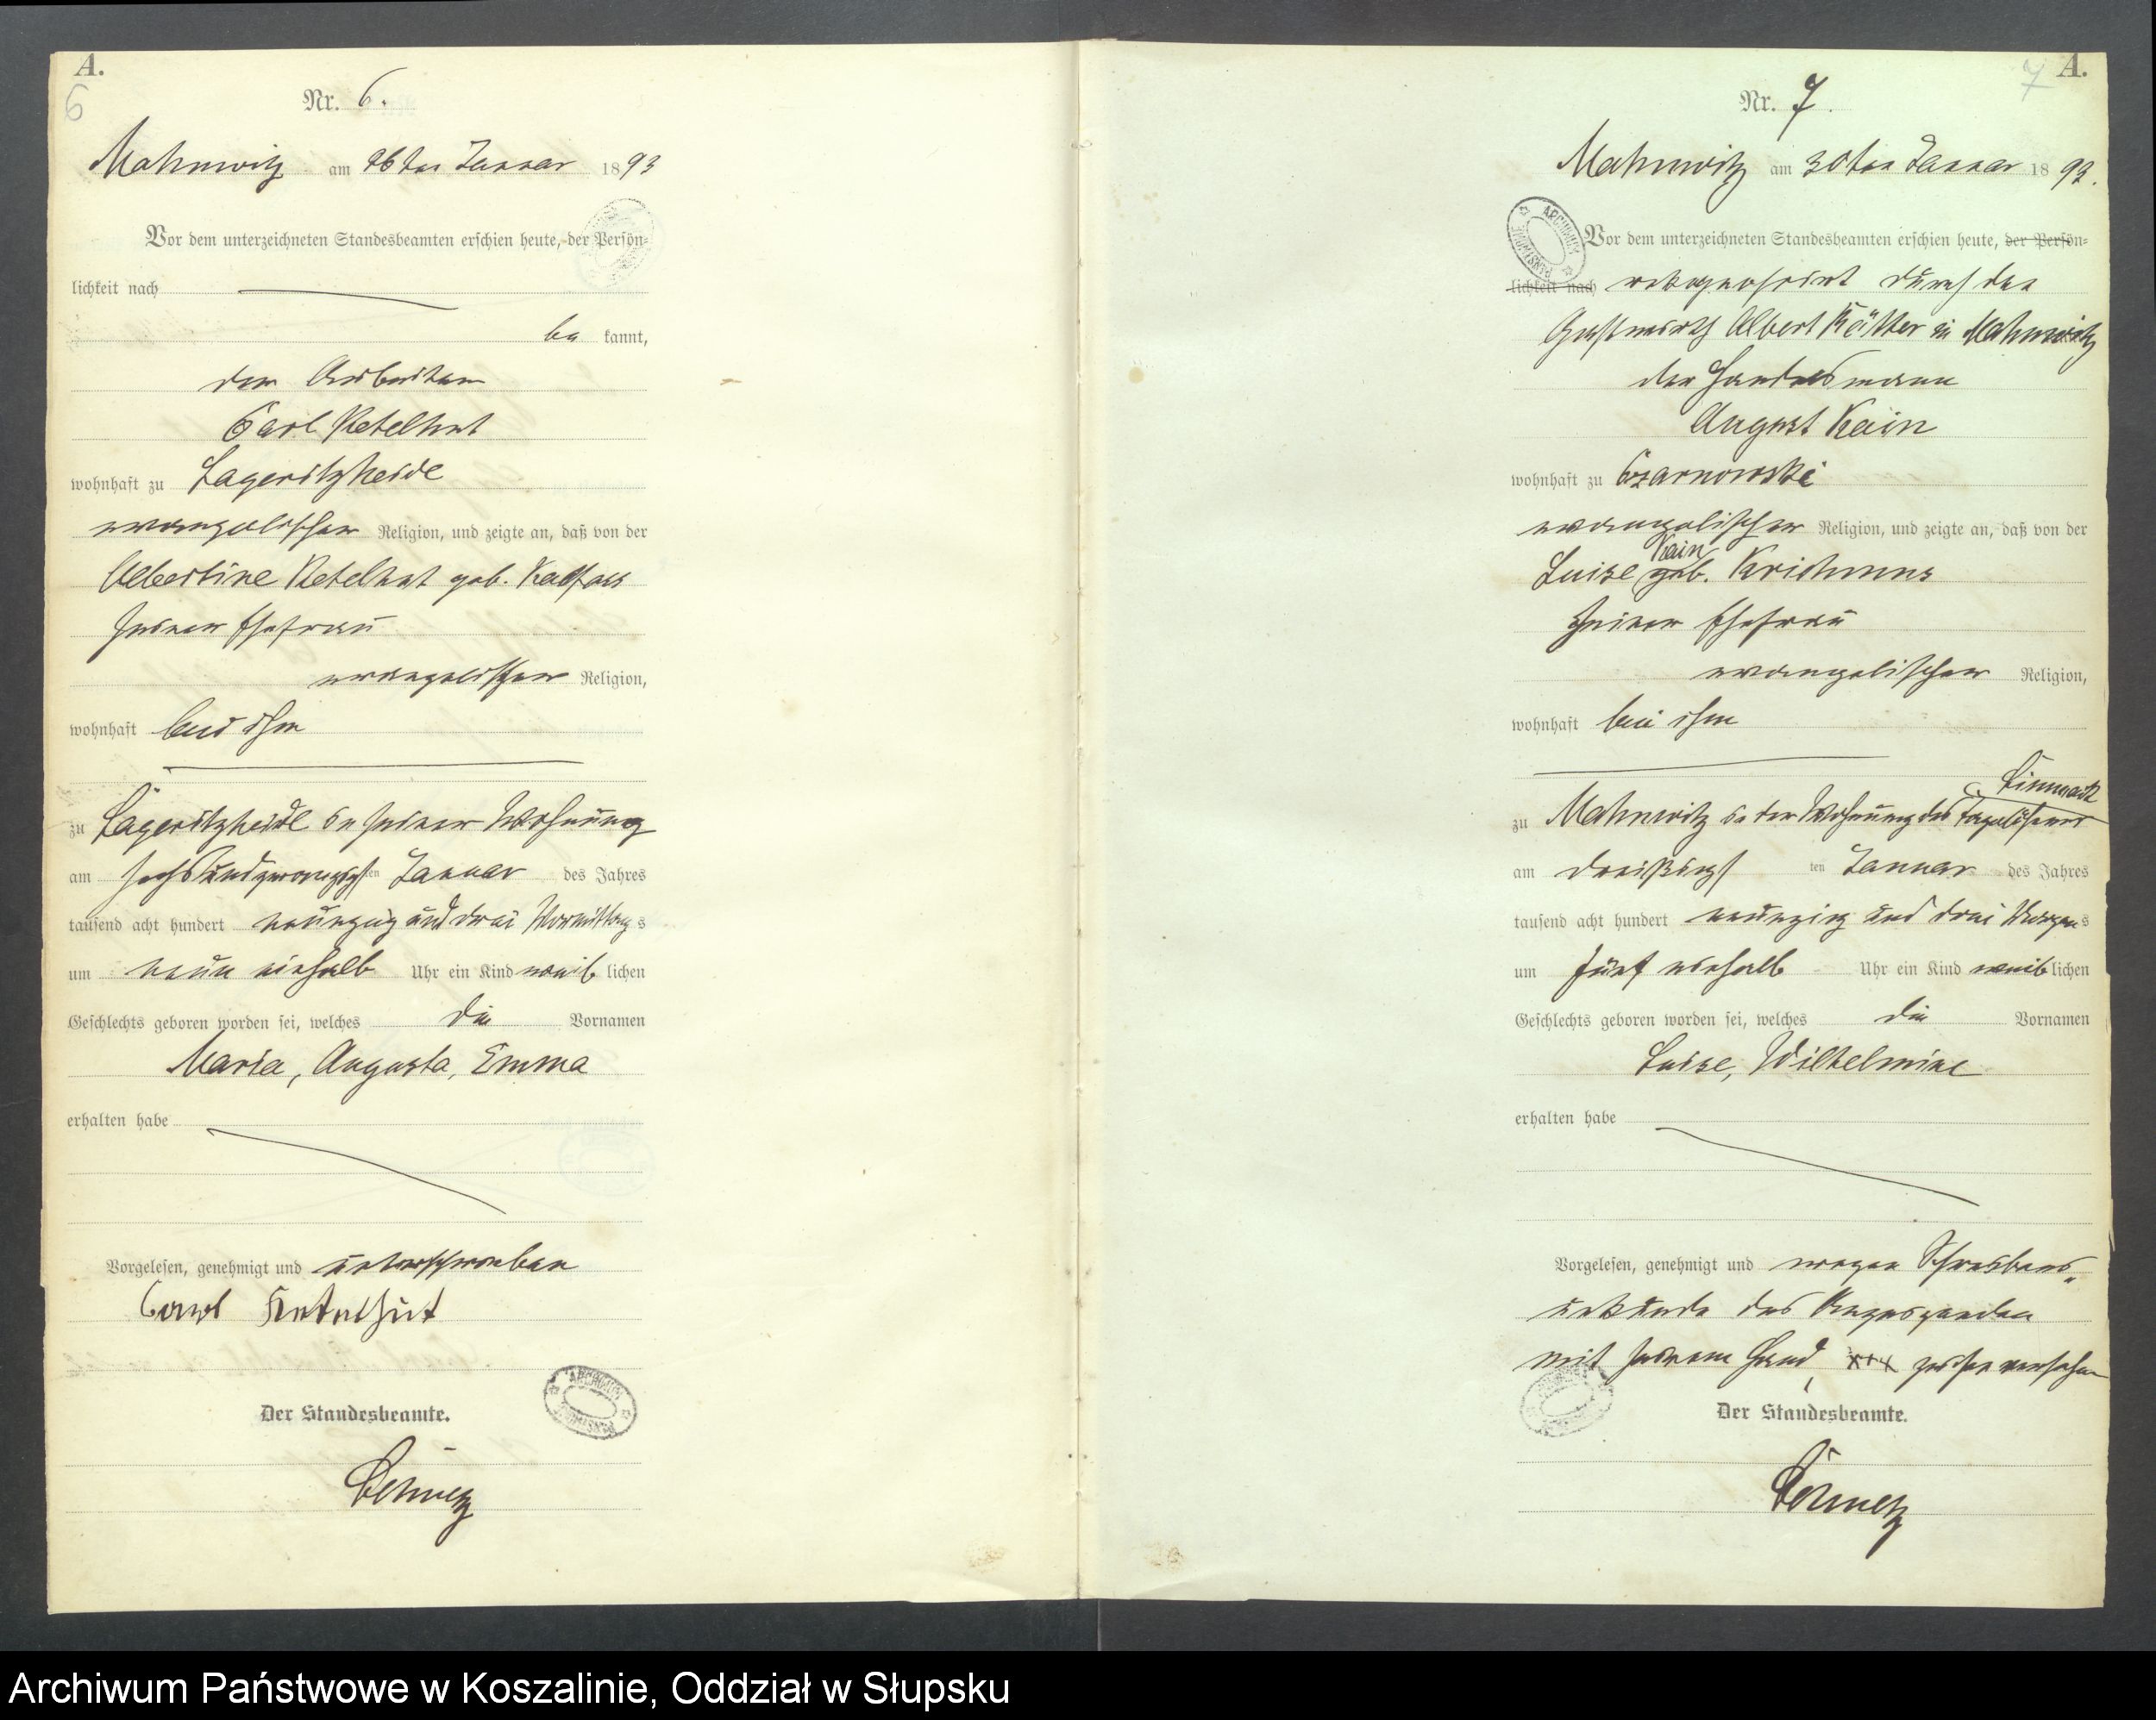 A.
6
Nr. 6.
Mahnwitz am 26ten Januar 1893
Vor dem unterzeichneten Standesbeamten erschien heute, der Persön=
lichkeit nach
be kannt,
der Arbeiter
Carl Ketelhut
wohnhaft zu Lageritzheide
evangelischer Religion, und zeigte an, daß von der
Albertine Ketelhut geb.
seiner Ehefrau
evangelischer Religion,
wohnhaft bei ihm
zu Lageritzheide in seiner Wohnung
am sechsundzwanzigsten Januar des Jahres
tausend acht hundert neunzig und drei Vormittags
um neun einhalb Uhr ein Kind weiblichen
Geschlechts geboren worden sei, welches die Vornamen
Maria, Augusta, Emma
erhalten habe
Vorgelesen, genehmigt und unterschrieben
Carl Ketelhut
Der Standesbeamte.
A.
7
Nr. 7.
Mahnwitz am 30ten Januar 1893.
Vor dem unterzeichneten Standesbeamten erschien heute, der Persön=
lichkeit nach rekognoscirt durch den
Gastwirth Albert in Mahnwitz
der Handelsmann
August Kain
wohnhaft zu Czarnowske
evangelischer Religion, und zeigte an, daß von der
Kain
Luise geb. Krichmuns
seiner Ehefrau
evangelischer Religion,
wohnhaft bei ihm
zu Mahnwitz in der Wohnung des Tagelöhners
am dreißigsten Januar des Jahres
tausend acht hundert neunzig und drei Morgens
um fünf einhalb Uhr ein Kind weiblichen
Geschlechts geboren worden sei, welches die Vornamen
Luise, Wilhelmine
erhalten habe
Vorgelesen, genehmigt und wegen Schreibens
unkunde des Anzeigenden
mit seinem Hand xxx zeichen versehen
Der Standesbeamte.
Archiwum Państwowe w Koszalinie, Oddział w Słupsku